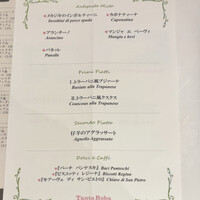 Antipasto Misto
メカジキのインボルティーニ
Involtini di pesce spada
カポナティーナ
Caponatina
アランチーノ
Arancino
マンジャ エ ベーヴィ
Mangia e bevi
パネッレ
Panelle
Primi Piatti
1.トラーパニ風ブジアーテ
Busiate alla Trapanese
2.トラーパニ風クスクス
Couscous alla Trapanese
Secondo Piatto
仔羊のアグラッサート
Agnello Aggrassato
Dolci e Caffè
Baci Pantechi
Biscotti Regina
Chiaro di San Pietro